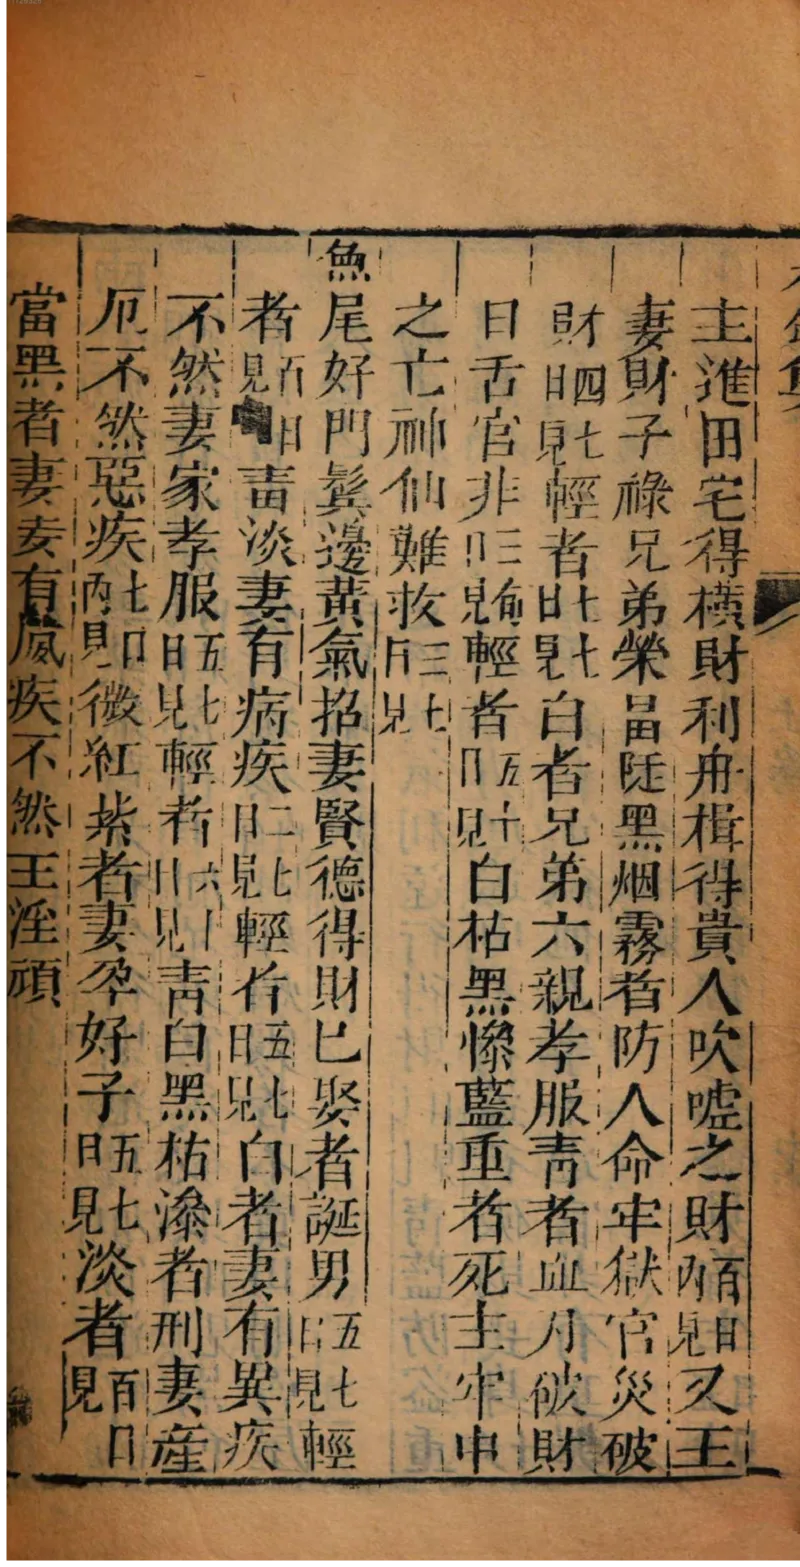 主進田宅得橫財利舟楫得貴人吹噓之財百日內見又主
妻財子祿兄弟榮昌陞黑烟霧者防人命牢獄官災破
財四七日見輕者七七日見白者兄弟六親孝服靑者血月破財
日舌官非三日見輕者五十日見白枯黑慘藍重者死主牢中
之亡神仙難救三七日見
魚尾奸門鬂邊黃氣招妻賢德得財已娶者誕男五七日見輕
者百日見靑淡妻有病疾二七日見輕者五七日見白者妻有異疾
不然妻家孝服五七日見輕者六十日見靑白黑枯滲者刑妻產
厄不然惡疾七日內見微紅紫者妻孕好子五七日見淡者百日見
當黑者妻妾有風疾不然主淫頑